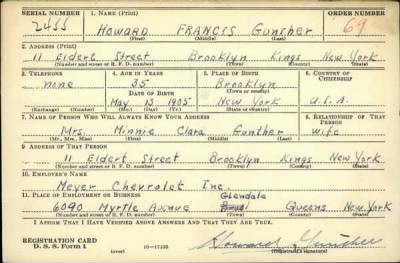 SERIAL NUMBER 1. NAME (Print) ORDER NUMBER
2455 HOWARD FRANCIS Gunther 69
(First) (Middle) (Last)
2. ADDRESS (Print)
11 Eldert Street Brooklyn Kings New York
(Number and street or R. F. D. number) (Town) (County) (State)
3. TELEPHONE 4. AGE IN YEARS 5. PLACE OF BIRTH 6. COUNTRY OF CITIZENSHIP
none 35 Brooklyn
DATE OF BIRTH (Town or county)
May 13 1905 New York U.S.A.
(Exchange) (Number) (Mo.) (Day) (Yr.) (State or country)
7. NAME OF PERSON WHO WILL ALWAYS KNOW YOUR ADDRESS 8. RELATIONSHIP OF THAT PERSON
Mrs. Minnie Clara Gunther wife
(Mr., Mrs., Miss) (First) (Middle) (Last)
9. ADDRESS OF THAT PERSON
11 Eldert Street Brooklyn Kings New York
(Number and street or R. F. D. number) (Town) (County) (State)
10. EMPLOYER'S NAME
Meyer Chevrolet Inc.
11. PLACE OF EMPLOYMENT OR BUSINESS Glendale
6090 Myrtle Avenue Queens New York
(Number and street or R. F. D. number) (Town) (County) (State)
I AFFIRM THAT I HAVE VERIFIED ABOVE ANSWERS AND THAT THEY ARE TRUE.
REGISTRATION CARD
D. S. S. Form 1 (over) 16—17105 Howard Gunther
(Registrant's signature)